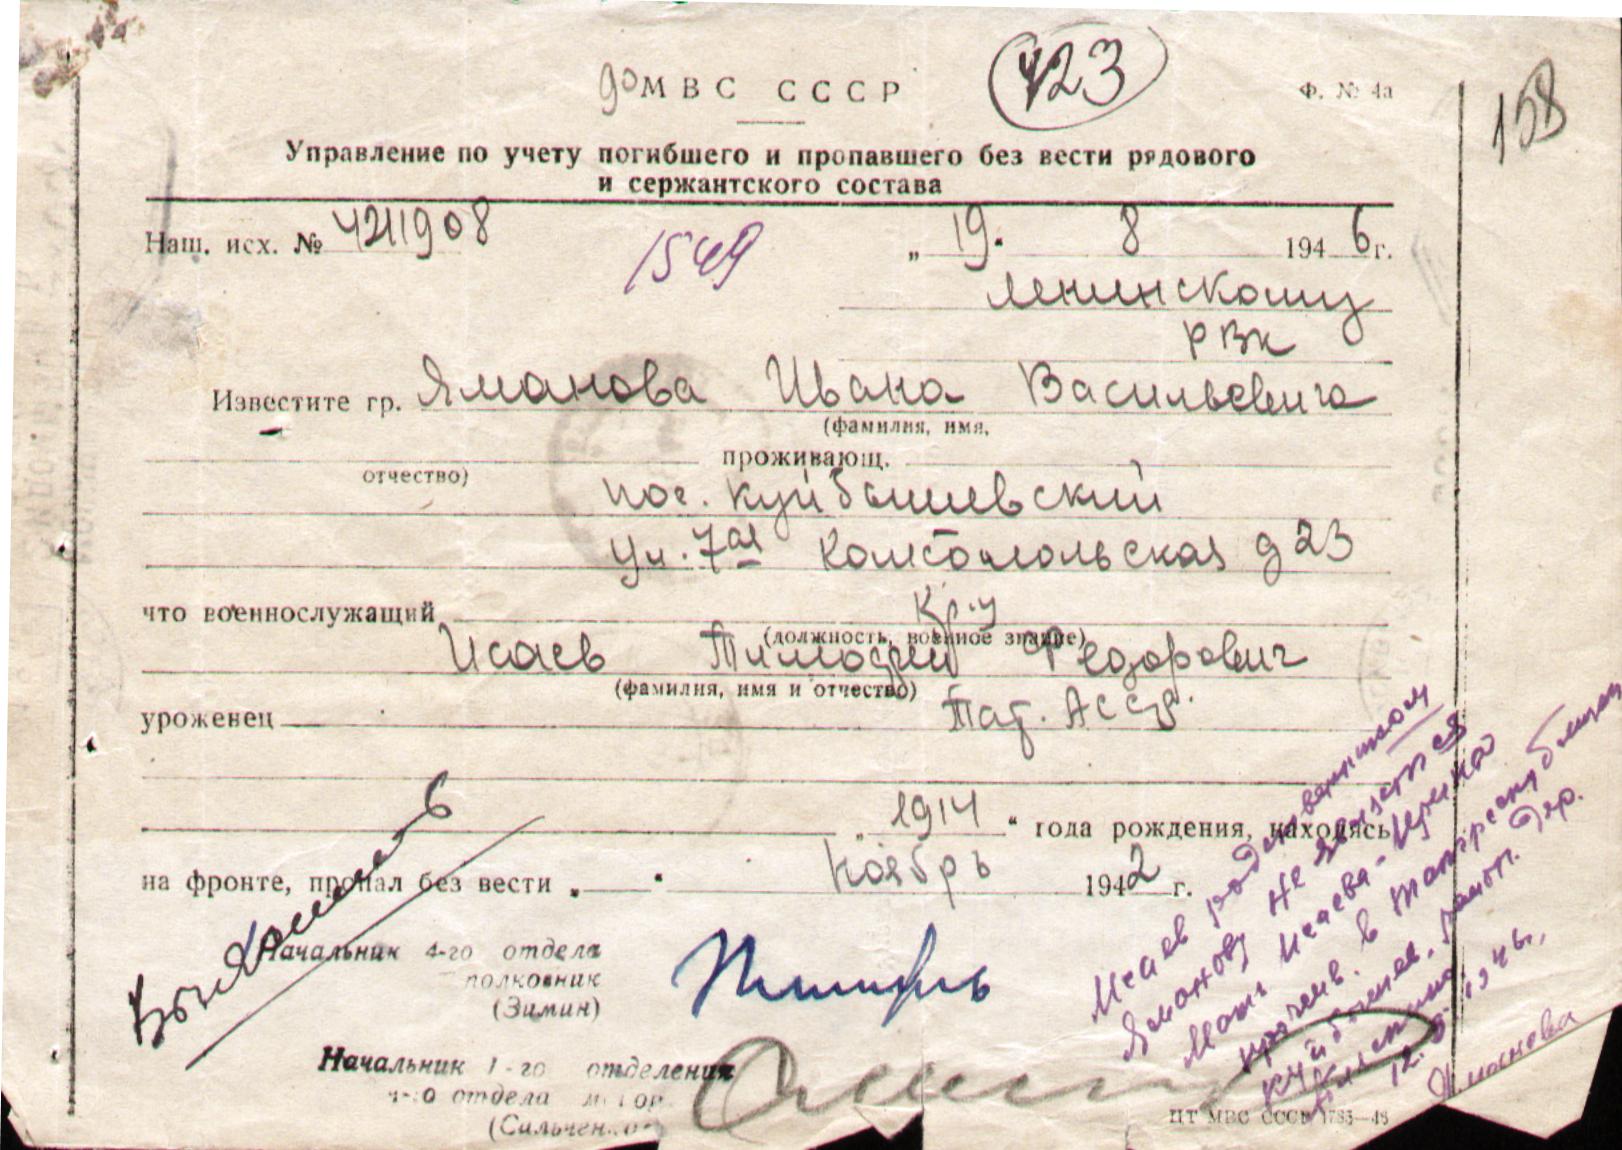 МВС СССР
423
Ф. № 4а
158
Управление по учету погибшего и пропавшего без вести рядового
и сержантского состава
Наш. исх. № 4211908
1549
„ 19. 8 1946 г.
Ленинскому
РВК
Известите гр. Яманова Ивана Васильевича
(фамилия, имя,
проживающ.
отчество)
пос. Куйбышевский
ул. 7ая Комсомольская д 23
что военнослужащий Кр-ц
(должность, военное звание)
Исаев Тимофей Федорович
(фамилия, имя и отчество)
уроженец Тат. АССР.
„ 1914 “ года рождения, находясь
на фронте, пропал без вести „ “ Ноябрь 1942 г.
Начальник 4-го отдела
полковник
(Зимин)
Начальник 1-го отделения
4-го отдела майор
Исаев родственником
Яманову не является
Мать Исаева-Ирина
в Татреспублики
Куйбышев.
ЦТ МВС СССР 1785—46